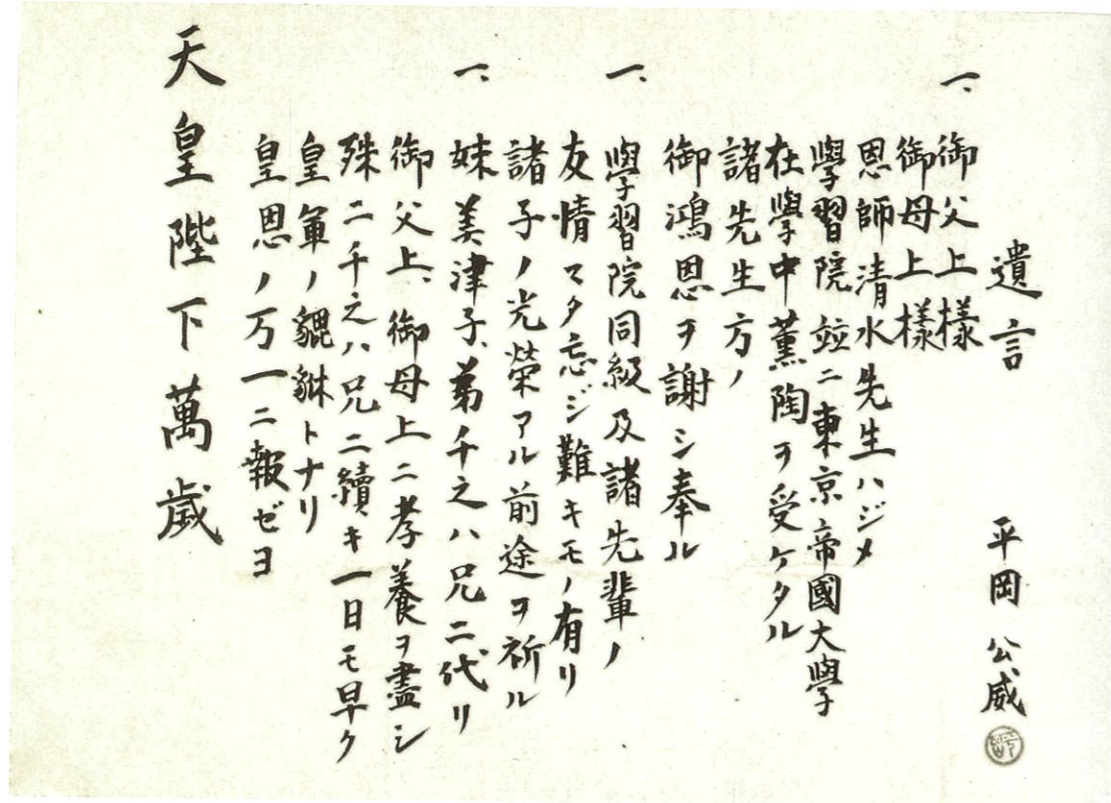 遺言
平岡公威
一、御父上樣
御母上樣
恩師清水先生ハジメ
學習院竝ニ東京帝國大學
在學中薫陶ヲ受ケタル
諸先生方ノ
御鴻恩ヲ謝シ奉ル
一、學習院同級及諸先輩ノ
友情マタ忘ジ難キモノ有リ
諸子ノ光榮アル前途ヲ祈ル
一、妹美津子、弟千之ハ兄ニ代リ
御父上、御母上ニ孝養ヲ盡シ
殊ニ千之ハ兄ニ續キ一日モ早ク
皇軍ノ貔貅トナリ
皇恩ノ万一ニ報ゼヨ
天皇陛下萬歳